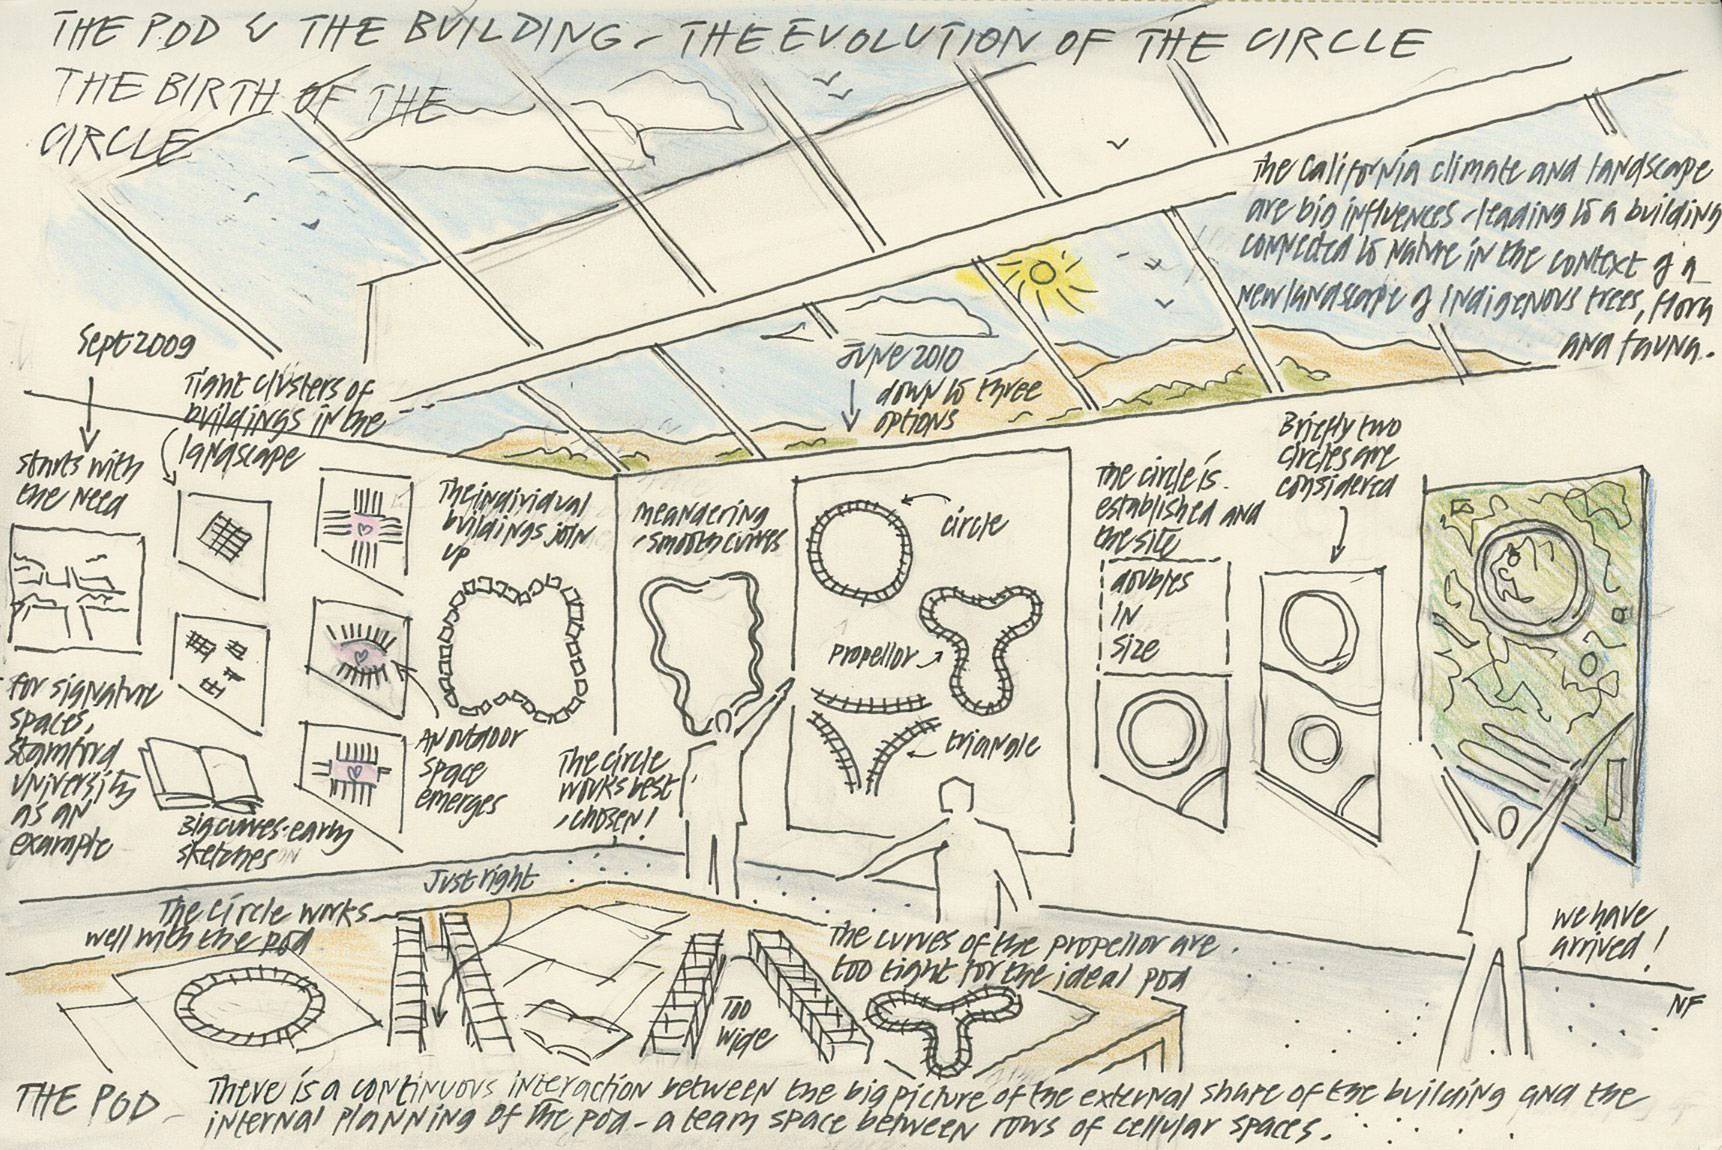 THE POD & THE BUILDING - THE EVOLUTION OF THE CIRCLE
THE BIRTH OF THE
CIRCLE
The California climate and landscape
are big influences - leading to a building
connected to nature in the context of a
new landscape of indigenous trees, flora
and fauna.
Sept 2009
starts with
the need
for signature
spaces,
Stamford
University
as an
example
Tight clusters of
buildings in the
landscape
Big curves - early
sketches
An outdoor
space
emerges
The individual
buildings join
up
The circle
works best
- chosen!
meandering
- smooth curves
June 2010
down to three
options
circle
propellor
triangle
The circle is
established and
the site
doubles
in
size
Briefly two
circles are
considered
we have
arrived!
NF
Just right
The circle works
well with the pod
Too
wide
The curves of the propellor are
too tight for the ideal pod
THE POD - There is a continuous interaction between the big picture of the external shape of the building and the
internal planning of the pod - a team space between rows of cellular spaces.